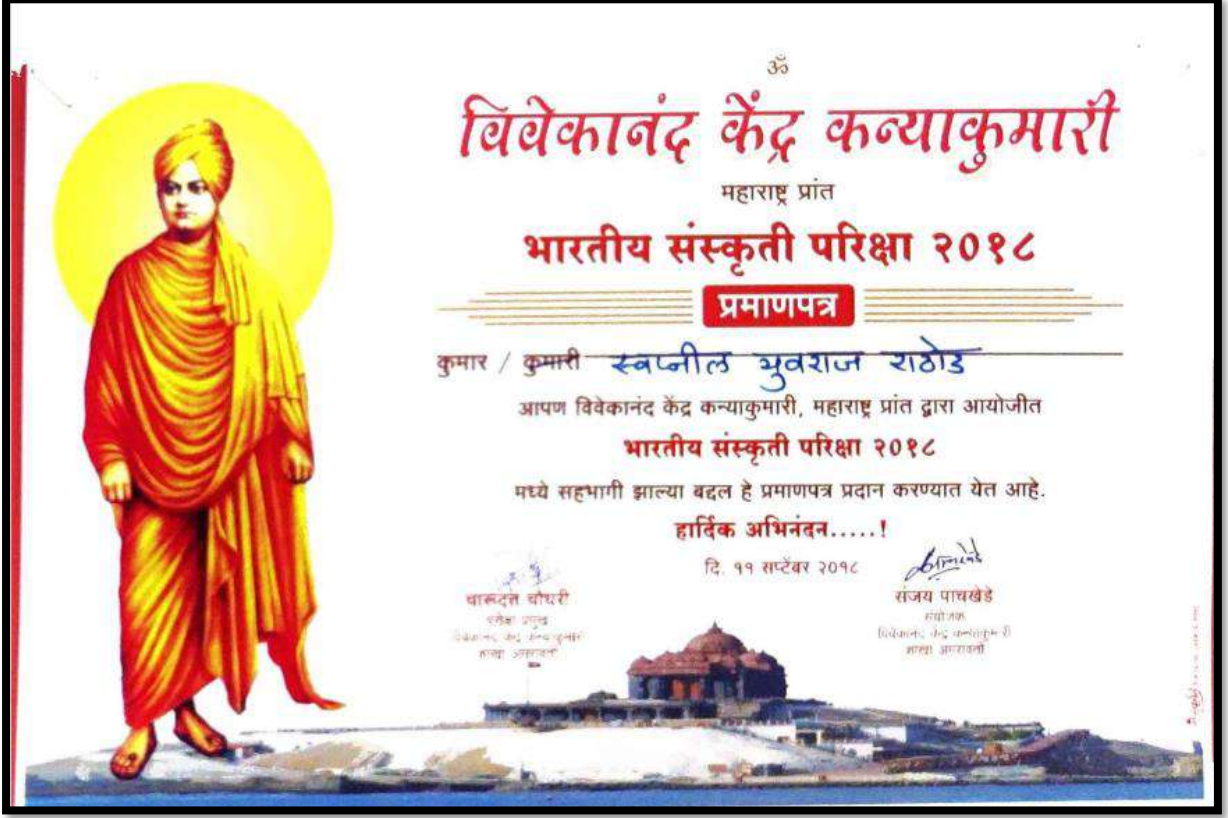 ॐ
विवेकानंद केंद्र कन्याकुमारी
महाराष्ट्र प्रांत
भारतीय संस्कृती परिक्षा २०१८
प्रमाणपत्र
कुमार / कुमारी स्वप्नील युवराज राठोड
आपण विवेकानंद केंद्र कन्याकुमारी, महाराष्ट्र प्रांत द्वारा आयोजीत
भारतीय संस्कृती परिक्षा २०१८
मध्ये सहभागी झाल्या बद्दल हे प्रमाणपत्र प्रदान करण्यात येत आहे.
हार्दिक अभिनंदन.....!
दि. ११ सप्टेंबर २०१८
चारूदत्त चौधरी
परीक्षा प्रमुख
विवेकानंद केंद्र कन्याकुमारी
शाखा अमरावती
संजय पाचखेडे
संयोजक
विवेकानंद केंद्र कन्याकुमारी
शाखा अमरावती